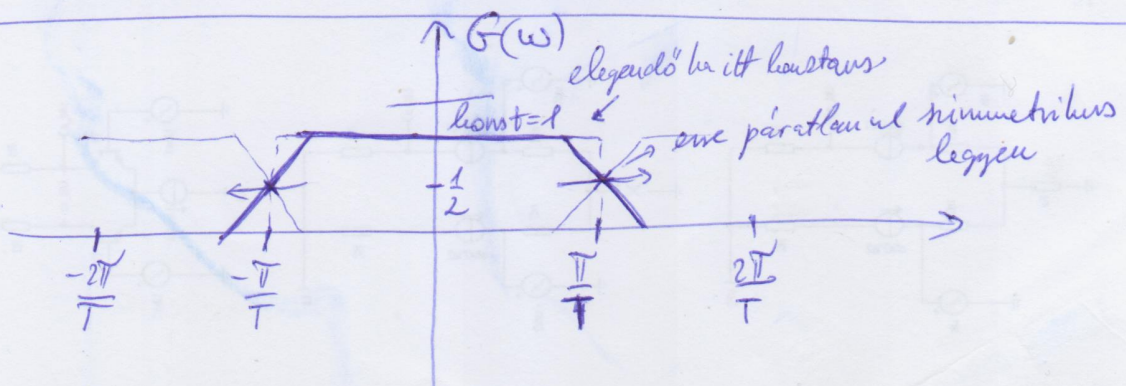 G(ω)
elegendő ha itt konstans
konst=1
erre páratlanul szimmetrikus
legyen
1/2
-2π/T
-π/T
π/T
2π/T